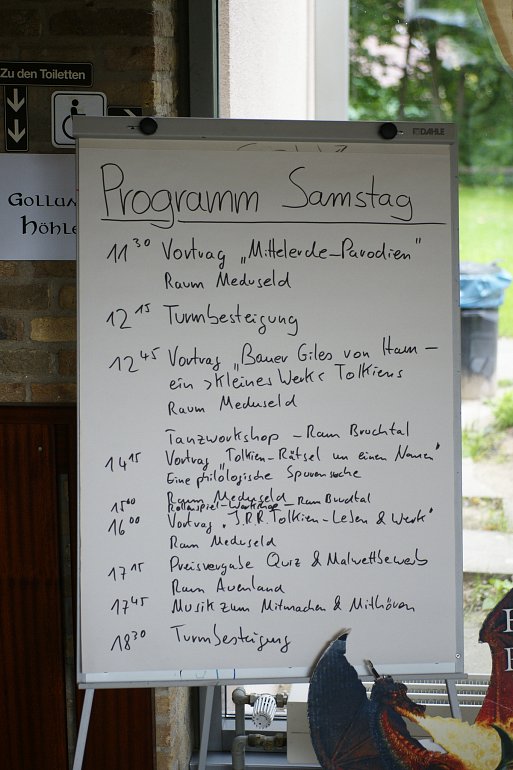 Zu den Toiletten
DAHLE
Gollum
Höhle
Programm Samstag
11 30 Vortrag „Mittelerde-Parodien"
Raum Meduseld
12 15 Turmbesteigung
12 45 Vortrag „Bauer Giles von Ham –
ein >kleines Werk< Tolkiens
Raum Meduseld
Tanzworkshop – Raum Bruchtal
14 15 Vortrag „Tolkien-Rätsel um einen Namen"
Eine philologische Spurensuche
Raum Meduseld
15 00 Rollenspiel-Workshop – Raum Bruchtal
16 00 Vortrag „J.R.R. Tolkien – Leben & Werk"
Raum Meduseld
17 15 Preisvergabe Quiz & Malwettbewerb
Raum Auenland
17 45 Musik zum Mitmachen & Mithören
18 30 Turmbesteigung